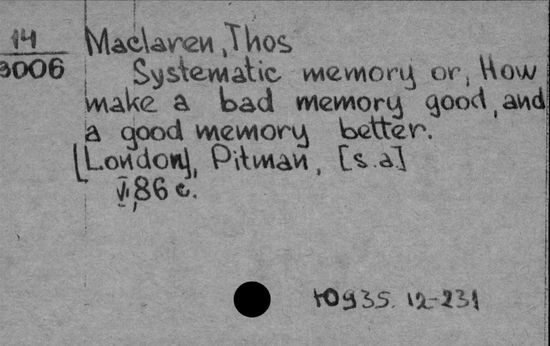 14
3006
Maclaren, Thos
Systematic memory or, How
make a bad memory good, and
a good memory better.
[London], Pitman, [s.a]
VI, 86 c.
Ю935. 12-231